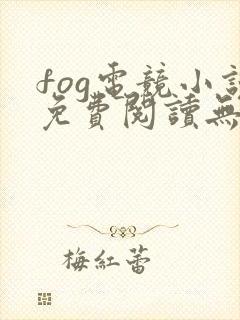 fog電競小說
免費閱讀無
梅紅蕾